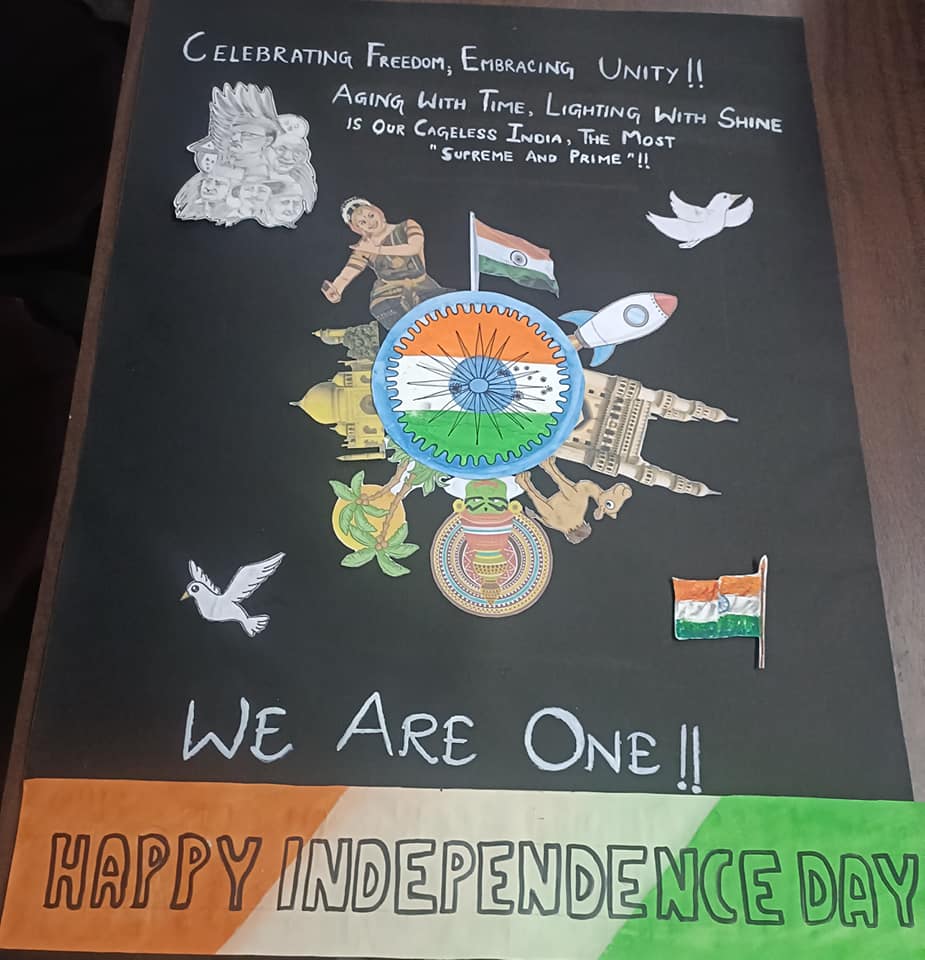 CELEBRATING FREEDOM, EMBRACING UNITY!!
AGING WITH TIME, LIGHTING WITH SHINE
IS OUR CAGELESS INDIA, THE MOST
"SUPREME AND PRIME"!!
WE ARE ONE!!
HAPPY INDEPENDENCE DAY